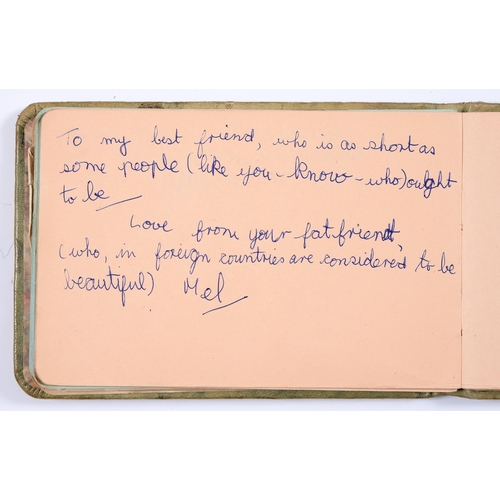 To my best friend, who is as short as
some people (like you-know-who) ought
to be
Love from your fat friend,
(who, in foreign countries are considered to be
beautiful) Mel